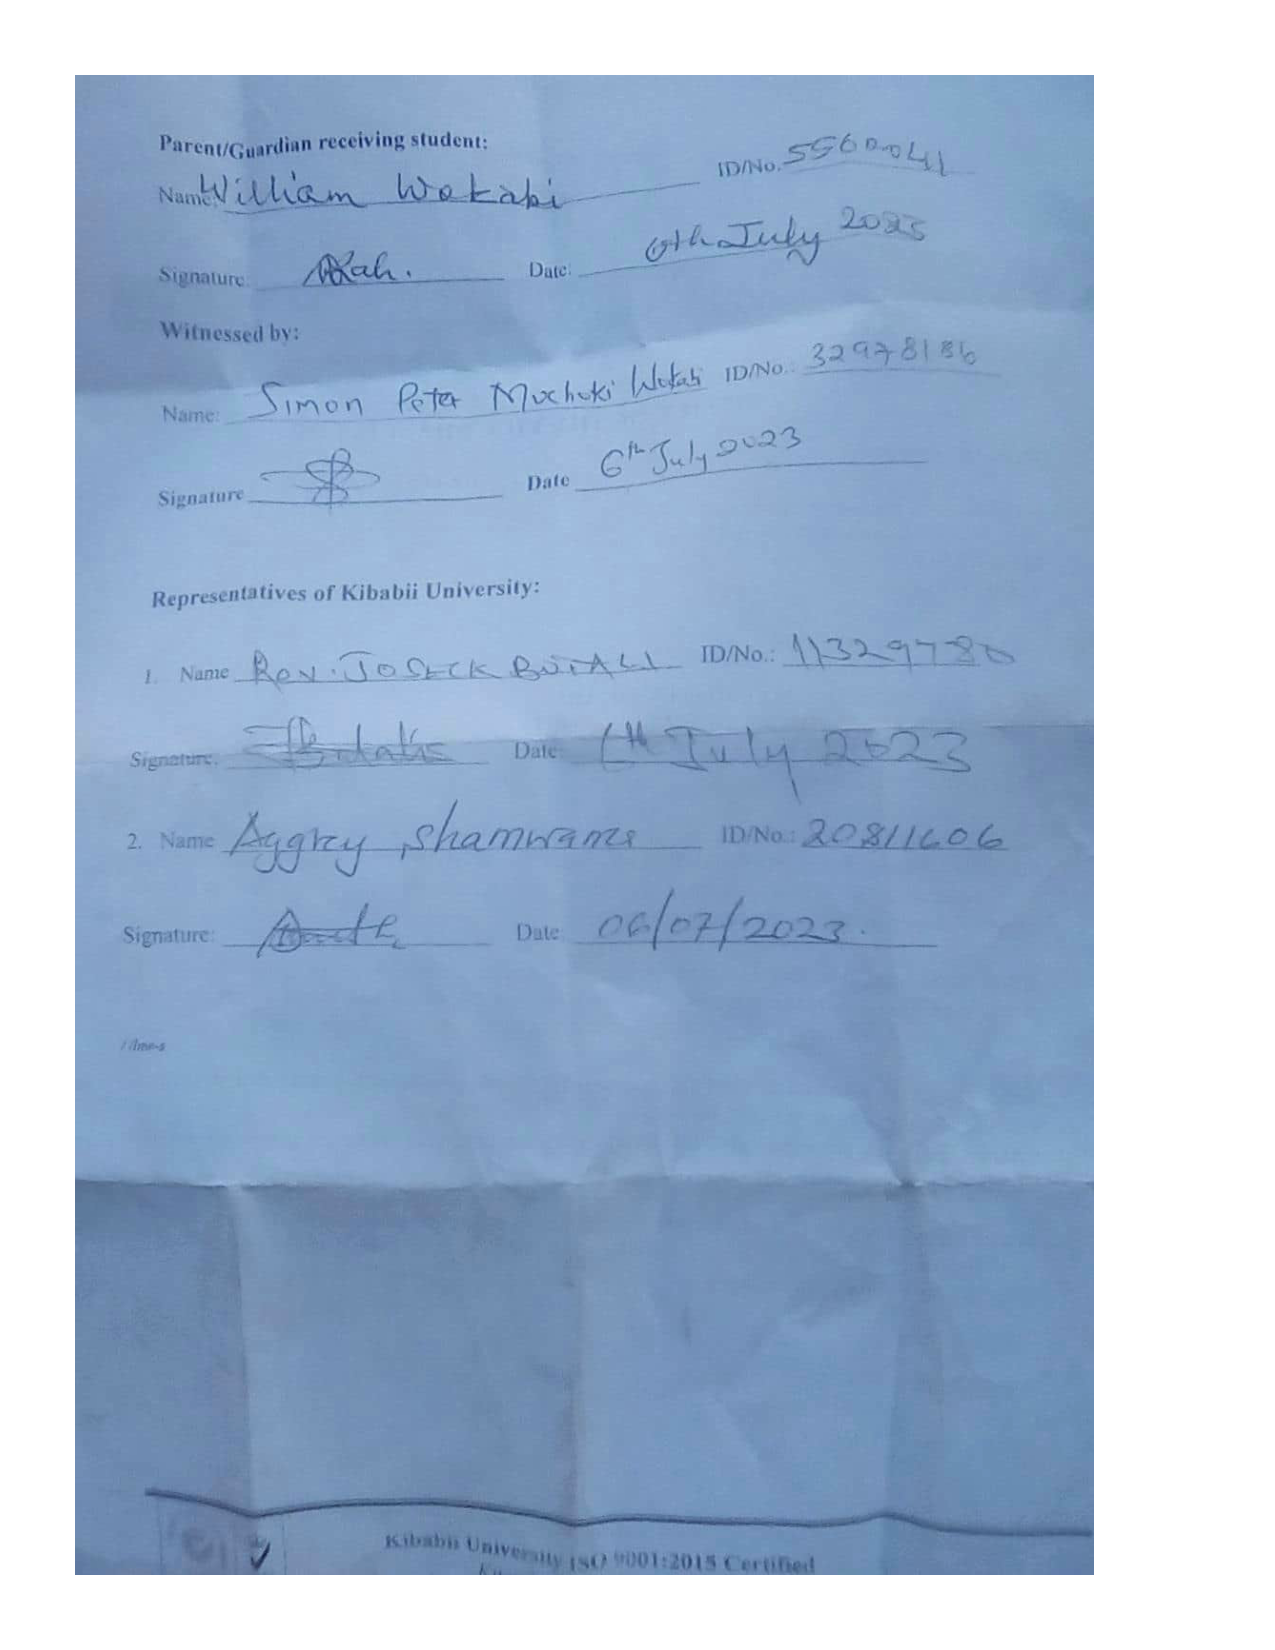 Parent/Guardian receiving student:
Name: William Wakabi ID/No. 5560041
Signature: Date: 6th July 2023
Witnessed by:
Name: Simon Peter Muchoki Wakabi ID/No.: 32978186
Signature Date 6th July 2023
Representatives of Kibabii University:
1. Name Rev. JOSECK BUTALI ID/No.: 11329780
Signature: Date 6th July 2023
2. Name Aggrey Shamwama ID/No.: 20811606
Signature: Date 06/07/2023.
Kibabii University ISO 9001:2015 Certified